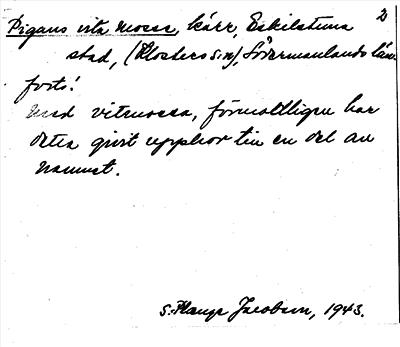 2
Pigans vita mosse, kärr, Eskilstuna
stad, (Klosters sn), Södermanlands län.
forts!
med vitmossa, förmodligen har
detta givit upphov till en del av
namnet.
S. Hange Jacobson, 1943.